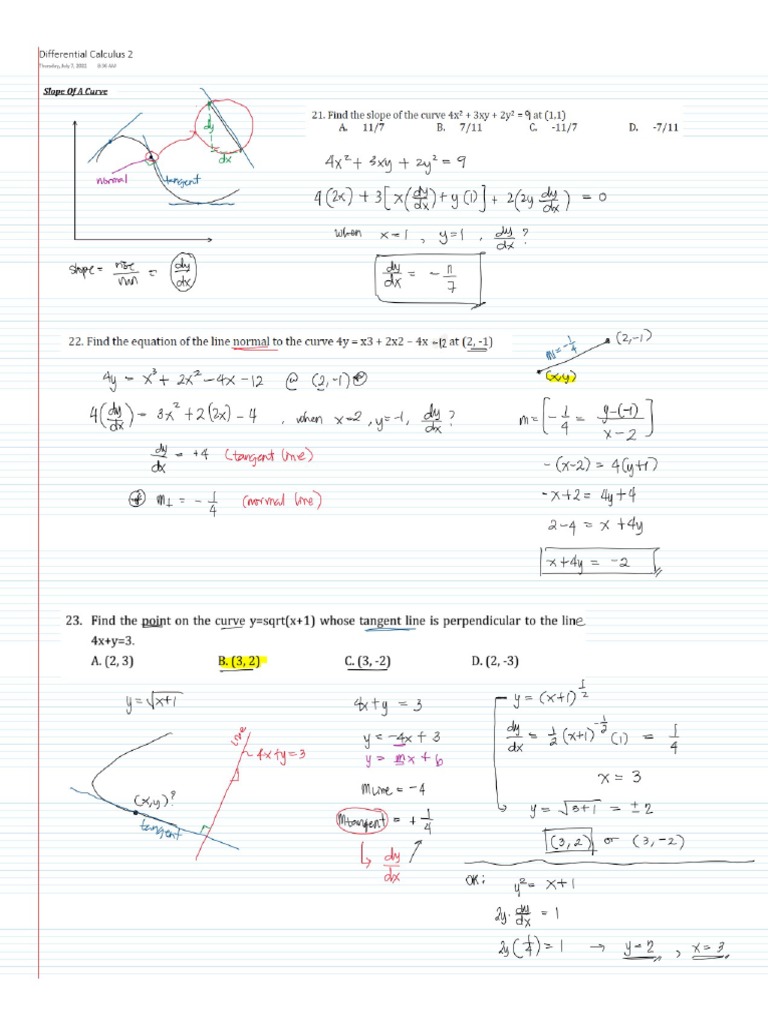 Differential Calculus 2
Thursday, July 7, 2022 8:06 AM
Slope Of A Curve
dy
dx
normal
tangent
slope = rise/run = dy/dx
21. Find the slope of the curve 4x² + 3xy + 2y² = 9 at (1,1)
A. 11/7 B. 7/11 C. -11/7 D. -7/11
4x² + 3xy + 2y² = 9
4(2x) + 3[x(dy/dx) + y(1)] + 2(2y dy/dx) = 0
when x=1, y=1, dy/dx?
dy/dx = -11/7
22. Find the equation of the line normal to the curve 4y = x3 + 2x2 – 4x –12 at (2, -1)
4y = x³ + 2x² -4x -12 @ (2,-1)
4(dy/dx) = 3x² + 2(2x) - 4, when x=2, y=-1, dy/dx?
dy/dx = +4 (tangent line)
m⊥ = -1/4 (normal line)
m=-1/4
(2,-1)
(x,y)
m=[-1/4 = y-(-1)/x-2]
-(x-2) = 4(y+1)
-x+2 = 4y+4
2-4 = x+4y
x+4y = -2
23. Find the point on the curve y=sqrt(x+1) whose tangent line is perpendicular to the line
4x+y=3.
A. (2, 3) B. (3, 2) C. (3, -2) D. (2, -3)
y=√x+1
line
4x+y=3
(x,y)?
tangent
4x+y = 3
y = -4x + 3
y = mx + b
mline = -4
mtangent = +1/4
dy/dx
y = (x+1)^1/2
dy/dx = 1/2(x+1)^-1/2 (1) = 1/4
x = 3
y = √3+1 = ±2
(3,2) or (3,-2)
OR:
y² = x+1
2y·dy/dx = 1
2y(1/4)=1 → y=2, x=3